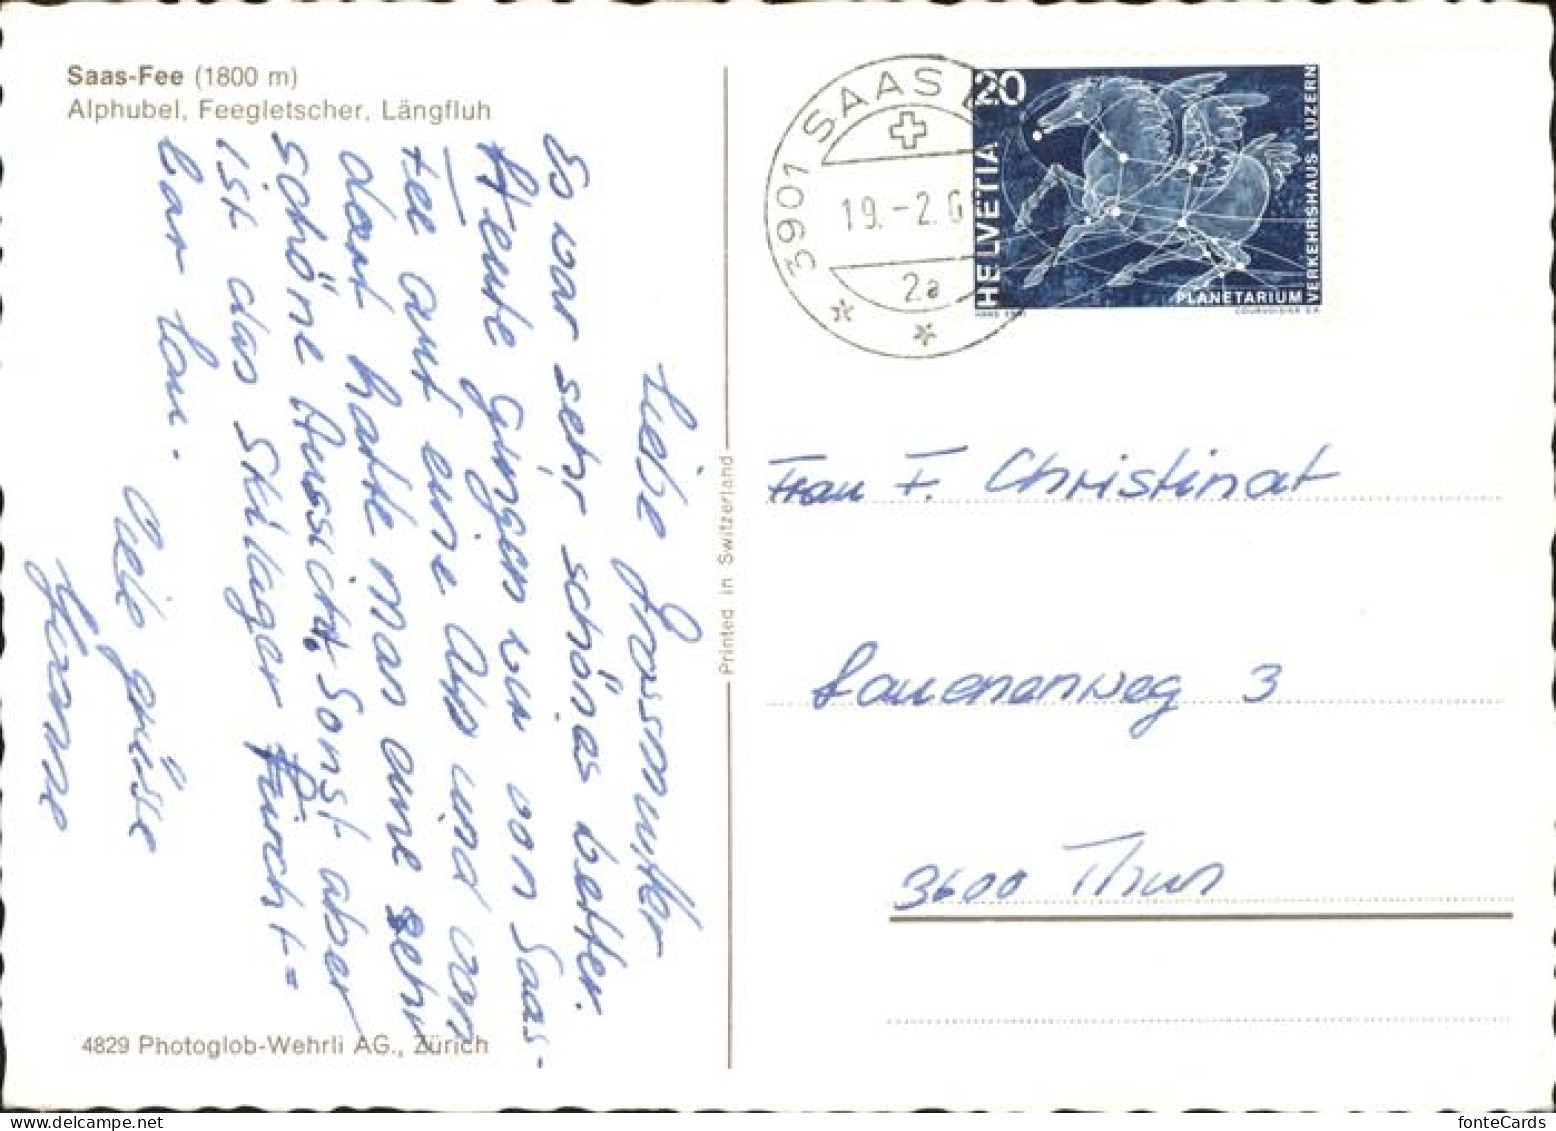 Saas-Fee (1800 m)
Alphubel, Feegletscher, Längfluh
Liebe Grossmutter
Es war sehr schönes Wetter.
Heute gingen wir von Saas-
fee auf eine Alp und von
dort hatte man eine sehr
schöne Aussicht. Sonst aber
ist das Skilager furcht=
bar
Viele grüsse
4829 Photoglob-Wehrli AG., Zürich
Printed in Switzerland
3901 SAAS
19.-2.6
2a
20
HELVETIA
PLANETARIUM
VERKEHRSHAUS LUZERN
COURVOISIER S.A.
Frau F. Christinat
Lauenenweg 3
3600 Thun
fonteCards